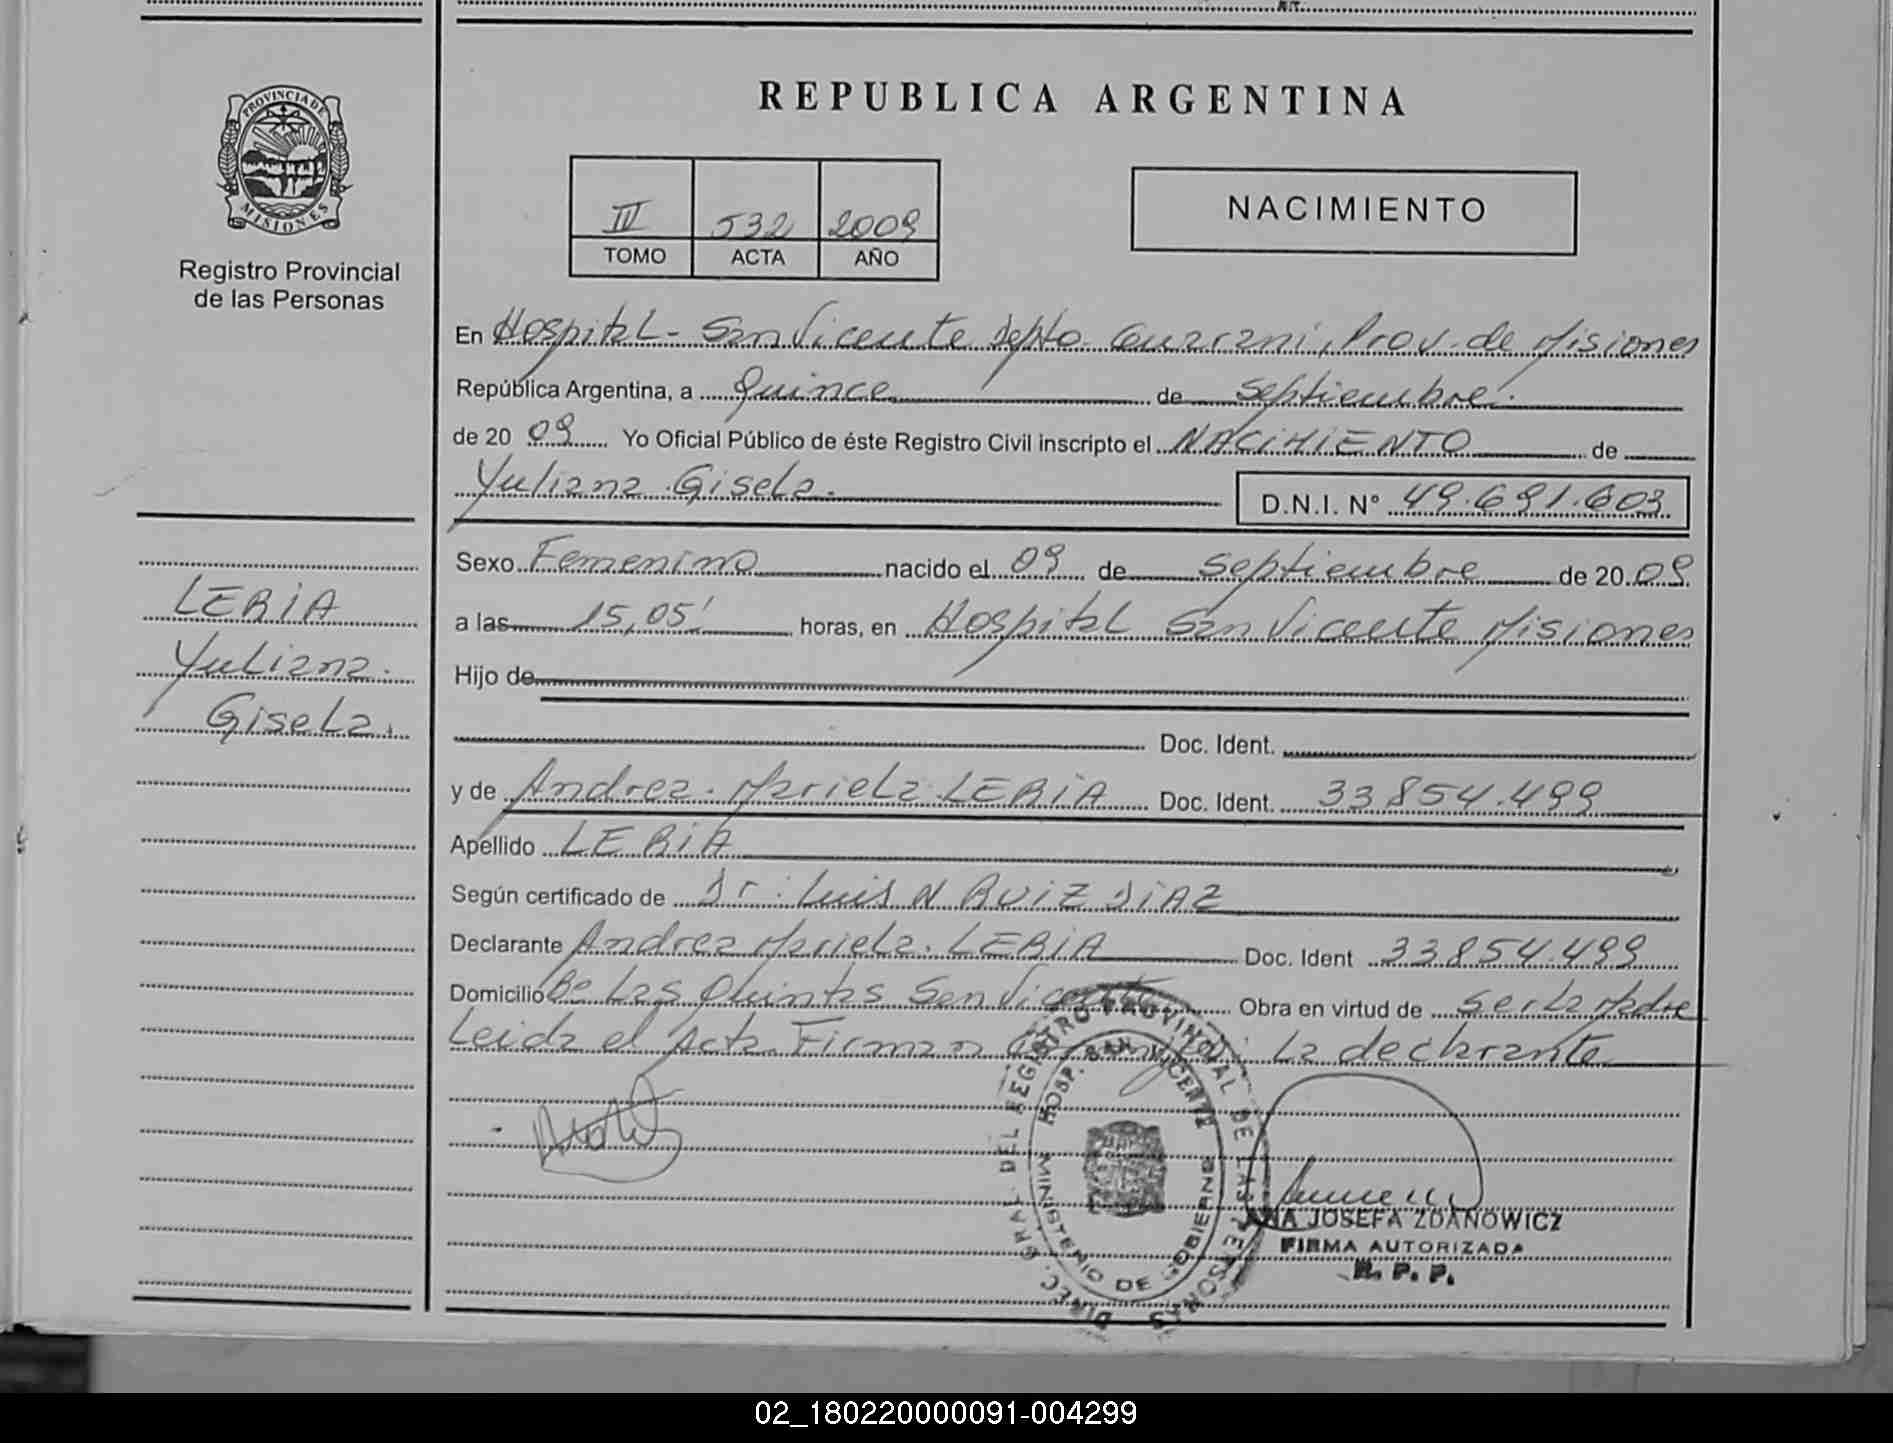 REPUBLICA ARGENTINA
PROVINCIA DE
MISIONES
Registro Provincial
de las Personas
III 532 2009
TOMO ACTA AÑO
NACIMIENTO
En Hospital - San Vicente Depto Guarani, Prov. de Misiones
República Argentina, a Quince de Septiembre.
de 2009 Yo Oficial Público de éste Registro Civil inscripto el NACIMIENTO de
Yuliana Gisela. D.N.I. Nº 49.691.603
Sexo Femenino nacido el 09 de Septiembre de 2009
a las 15,05' horas, en Hospital San Vicente Misiones
Hijo de
Doc. Ident.
y de Andrea Mariela LERIA Doc. Ident. 33854.499
Apellido LERIA
Según certificado de Dr. Luis N RUIZ DIAZ
Declarante Andrea Mariela LERIA Doc. Ident 33854.499
Domicilio Bº Las Quintas San Vicente Obra en virtud de ser la Madre
Leida el Acta Firman la declarante
LERIA
Yuliana
Gisela.
DIREC. GRAL. DEL REGISTRO PROVINCIAL DE LAS PERSONAS
HOSP. SAN VICENTE
MINISTERIO DE GOBIERNO
JOSEFA ZDANOWICZ
FIRMA AUTORIZADA
R. P. P.
02_180220000091-004299